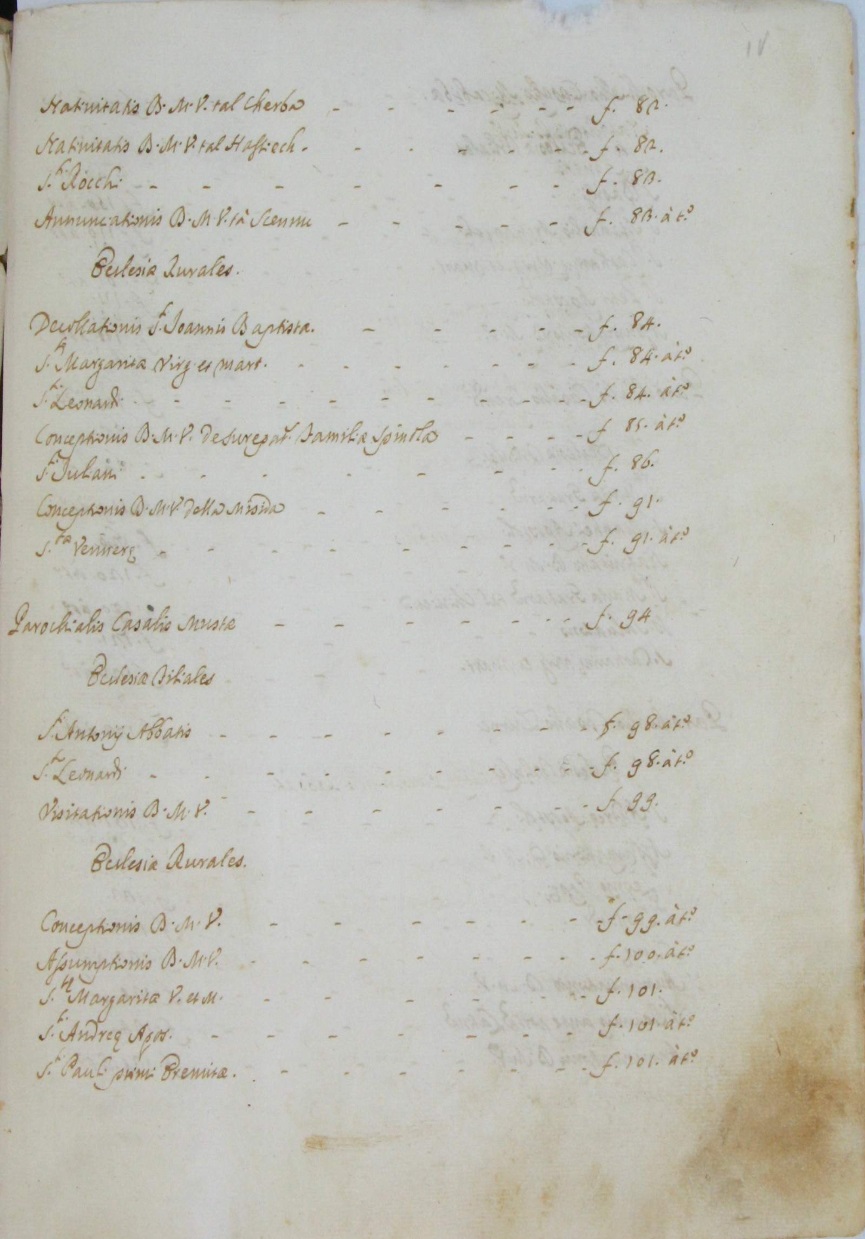 Nativitatis B. M. V. tal Cherba - - - - - - f. 82.
Nativitatis B. M. V. tal Hasfech. - - - - - f. 82.
S.ti Rocchi - - - - - - - - f. 83.
Annunciationis B. M. V. ta Scemmu - - - - - - f. 83. àt.o
Ecclesiæ Rurales.
Decollationis S.ti Joannis Baptistæ. - - - - - f. 84.
S.tæ Margaritæ Virg. et Mart. - - - - - - - f. 84. àt.o
S.ti Leonardi - - - - - - - - - f. 84. àt.o
Conceptionis B. M. V. de Familiæ Spinola - - - - f. 85. àt.o
S.ti Juliani - - - - - - - f. 86.
Conceptionis B. M. V. della - - - - - - f. 91.
S.tæ Venneræ - - - - - - - - - f. 91. àt.o
Parochialis Casalis Mustæ - - - - - - - f. 94
Ecclesiæ Filiales
S.ti Antonij Abbatis - - - - - - - f. 98. àt.o
S.ti Leonardi - - - - - - - - f. 98. àt.o
Visitationis B. M. V. - - - - - - f. 99.
Ecclesiæ Rurales.
Conceptionis B. M. V. - - - - - - f. 99. àt.o
Assumptionis B. M. V. - - - - - - - - f. 100. àt.o
S.tæ Margaritæ V. et M. - - - - - - - f. 101.
S.ti Andreę Apos. - - - - - - - f. 101 àt.o
S.ti Pauli primi Eremitæ. - - - - - - - f. 101. àt.o